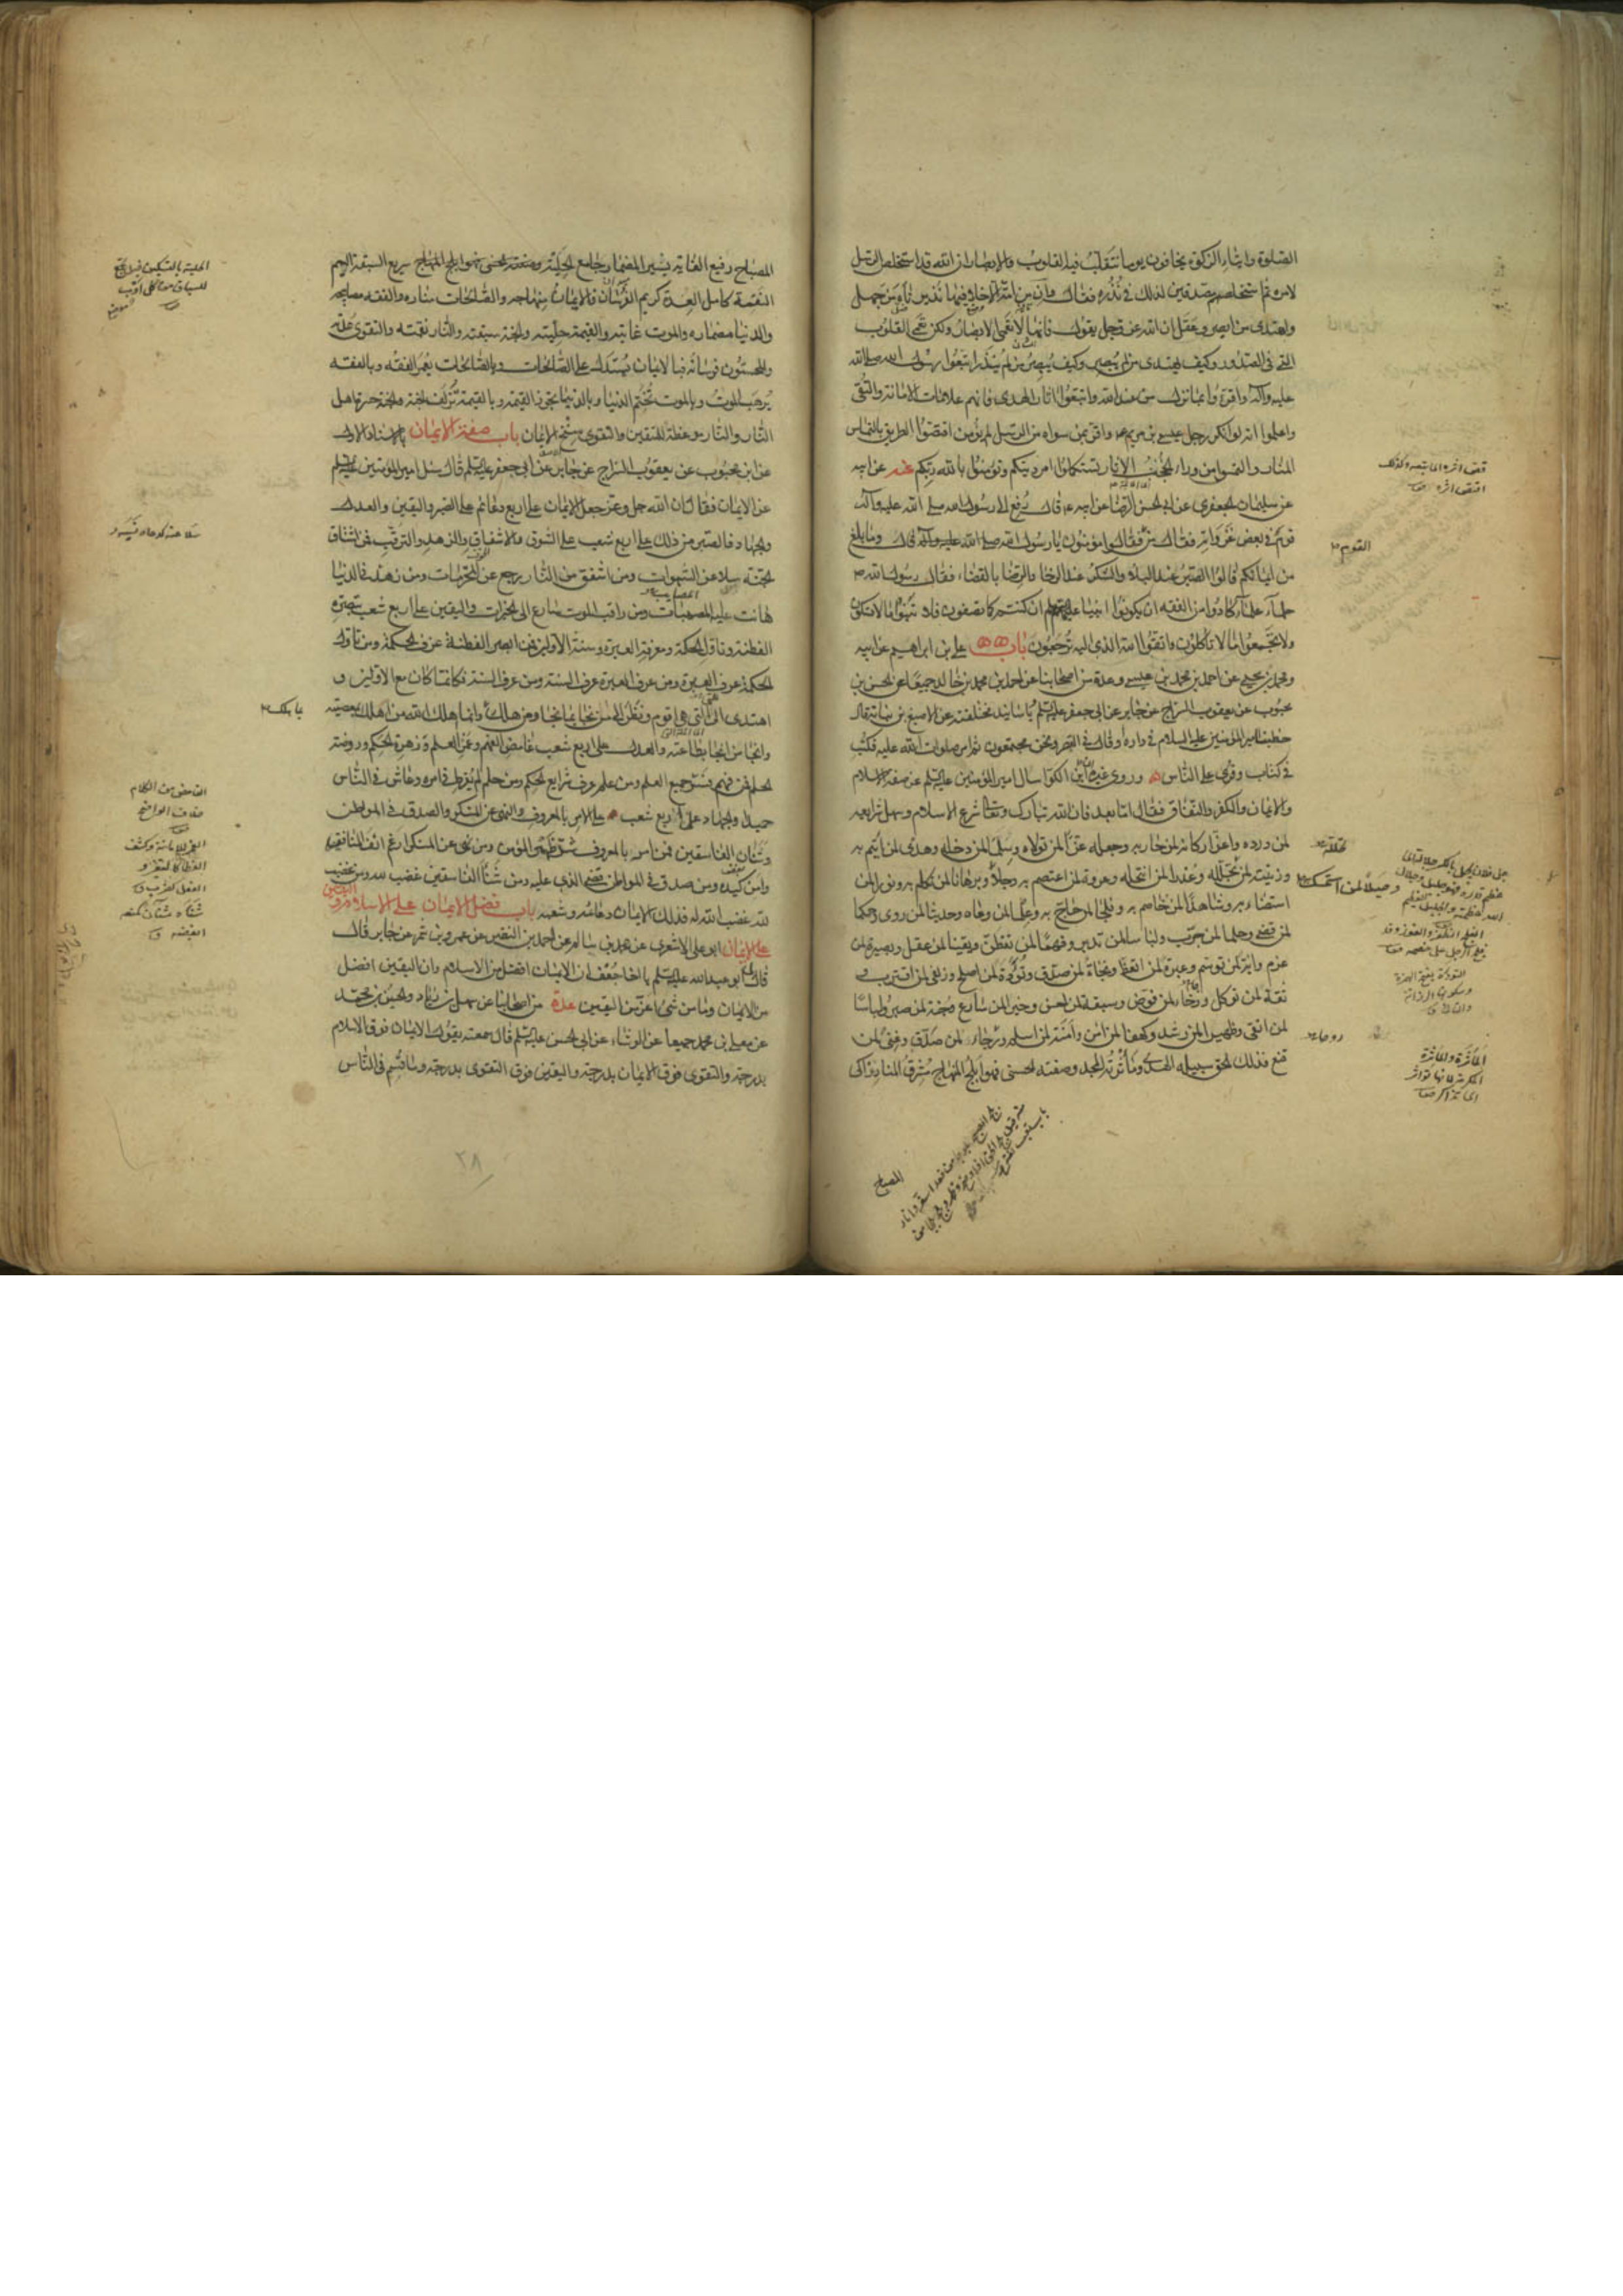 الصلوة وايتاء الزكوة يخافون يوما تتقلب فيه القلوب والابصار ان الله قد استخلص الرسل
لامره ثم استخلصهم مصدقين لذلك في نذره فقال وان من امة الا خلا فيها نذير تاه من جهل
واهتدى من ابصر وعقل ان الله عز وجل يقول فانها لا تعمى الابصار ولكن تعمى القلوب
التي في الصدور وكيف يهتدى من لم يبصر وكيف يبصر من لم ينذر اتبعوا رسول الله صلى الله
عليه وآله واقروا بما نزل من عند الله واتبعوا اثار الهدى فانهم علامات الامانة والتقى
واعلموا انه لو انكر رجل عيسى بن مريم واقر بمن سواه من الرسل لم يؤمن اقتصوا الطريق بالتماس
المنار والتمسوا من وراء الحجب الاثار تستكملوا امر دينكم وتؤمنوا بالله ربكم عنه عن ابيه
عن سليمان الجعفري عن ابي الحسن الرضا عن ابيه قال رفع الى رسول الله صلى الله عليه وآله
قوم في بعض غزواته فقال من القوم فقالوا مؤمنون يا رسول الله صلى الله عليه وآله قال وما بلغ
من ايمانكم قالوا الصبر عند البلاء والشكر عند الرخا والرضا بالقضاء فقال رسول الله ص
حلماء علماء كادوا من الفقه ان يكونوا انبياء ان كنتم كما تصفون فلا تبنوا ما لا تسكنون
ولا تجمعوا ما لا تأكلون واتقوا الله الذي اليه ترجعون باب علي بن ابراهيم عن ابيه
ومحمد بن يحيى عن احمد بن محمد بن عيسى وعدة من اصحابنا عن احمد بن محمد بن خالد جميعا عن الحسن بن
محبوب عن يعقوب السراج عن جابر عن ابي جعفر عليه السلم وباسانيد مختلفة عن الاصبغ بن نباتة قال
خطبنا امير المؤمنين عليه السلام في داره او قال في القصر ونحن مجتمعون ثم امر صلوات الله عليه فكتب
في كتاب وقرئ على الناس وروى غيره ان ابن الكوا سال امير المؤمنين عليه السلم عن صفة الاسلام
والايمان والكفر والنفاق فقال اما بعد فان الله تبارك وتعالى شرع الاسلام وسهل شرايعه
لمن ورده واعز اركانه لمن حاربه وجعله عزا لمن تولاه وسلما لمن دخله وهدى لمن ائتم به
وزينة لمن تجلله وعذرا لمن انتحله وعروة لمن اعتصم به وحبلا لمن استمسك به وبرهانا لمن تكلم به ونورا لمن
استضاء به وشاهدا لمن خاصم به وفلجا لمن حاج به وعلما لمن وعاه وحديثا لمن روى وحكما
لمن قضى وحلما لمن جرب ولباسا لمن تدبر وفهما لمن تفطن ويقينا لمن عقل وبصيرة لمن
عزم واية لمن توسم وعبرة لمن اتعظ ونجاة لمن صدق وتؤدة لمن اصلح وزلفى لمن اقترب و
ثقة لمن توكل ورخاء لمن فوض وسبقة لمن احسن وخيرا لمن سارع وجنة لمن صبر ولباسا
لمن اتقى وظهيرا لمن رشد وكهفا لمن امن وامنة لمن اسلم ورجاء لمن صدق وغنى لمن
قنع فذلك الحق سبيله الهدى ومأثرته المجد وصفته الحسنى فهو ابلج المنهاج مشرق المنار ذاكى
المصباح
قص اثره اى تتبعه وكذلك
اقتص اثره
القوم
المأثرة والمأثرة
المكرمة لانها تؤاثر
المصباح رفيع الغاية يسير المضمار جامع الحلبة سريع السبقة اليم
النقمة كامل العدة كريم الفرسان فالايمان منهاجه والصالحات مناره والفقه مصابيحه
والدنيا مضماره والموت غايته والقيمة حلبته والجنة سبقته والنار نقمته والتقوى عدته
والمحسنون فرسانه فبالايمان يستدل على الصالحات وبالصالحات يعمر الفقه وبالفقه
يرهب الموت وبالموت تختم الدنيا وبالدنيا تجوز القيمة وبالقيمة تزلف الجنة والجنة حسرة اهل
النار والنار موعظة للمتقين والتقوى سنخ الايمان باب صفة الايمان بالاسناد الاول
عن ابن محبوب عن يعقوب السراج عن جابر عن ابي جعفر عليه السلم قال سئل امير المؤمنين
عن الايمان فقال ان الله جل وعز جعل الايمان على اربع دعائم على الصبر واليقين والعدل
والجهاد فالصبر من ذلك على اربع شعب على الشوق والاشفاق والزهد والترقب فمن اشتاق
الى الجنة سلا عن الشهوات ومن اشفق من النار رجع عن المحرمات ومن زهد في الدنيا
هانت عليه المصيبات ومن راقب الموت سارع الى الخيرات واليقين على اربع شعب تبصرة
الفطنة وتاول الحكمة ومعرفة العبرة وسنة الاولين فمن ابصر الفطنة عرف الحكمة ومن تاول
الحكمة عرف العبرة ومن عرف العبرة عرف السنة ومن عرف السنة فكانما كان مع الاولين و
اهتدى الى التي هي اقوم ونظر الى من نجا بما نجا ومن هلك بما هلك وانما اهلك الله من اهلك بمعصيته
وانجا من انجا بطاعته والعدل على اربع شعب غامض الفهم وغمر العلم وزهرة الحكم وروضة
الحلم فمن فهم فسر جميع العلم ومن علم عرف شرايع الحكم ومن حلم لم يفرط في امره وعاش في الناس
حميدا والجهاد على اربع شعب على الامر بالمعروف والنهي عن المنكر والصدق في المواطن
وشنآن الفاسقين فمن امر بالمعروف شد ظهر المؤمن ومن نهى عن المنكر ارغم انف المنافق
وامن كيده ومن صدق في المواطن قضى الذي عليه ومن شنأ الفاسقين غضب لله ومن غضب
لله غضب الله له فذلك الايمان ودعائمه وشعبه باب فضل الايمان على الاسلام واليقين
على الايمان ابو علي الاشعري عن محمد بن سالم عن احمد بن النضر عن عمرو بن شمر عن جابر قال
قال لي ابو عبد الله عليه السلم يا اخا جعف ان الايمان افضل من الاسلام وان اليقين افضل
من الايمان وما من شئ اعز من اليقين عدة من اصحابنا عن سهل بن زياد والحسين بن محمد
عن معلى بن محمد جميعا عن الوشاء عن ابي الحسن عليه السلم قال سمعته يقول الايمان فوق الاسلام
بدرجة والتقوى فوق الايمان بدرجة واليقين فوق التقوى بدرجة وما قسم في الناس
الحلبة بالتسكين خيل تجمع
للسباق من كل اوب
الغامض من الكلام
خلاف الواضح
٢٨